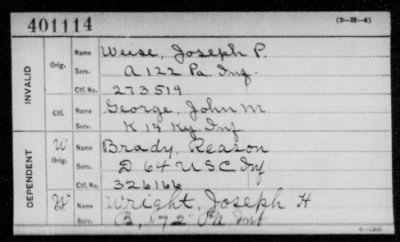 401114
(3-H-4)
INVALID
Orig.
Name Weise, Joseph P.
Serv. A 122 Pa Inf.
Ctf. No. 273519
Ctf.
Name George, John M
Serv. K 14 Ky. Inf
DEPENDENT
W
Orig.
Name Brady, Reason
Serv. D 64 U S C Inf
Ctf. No. 326166
W
Name Wright, Joseph H
Serv. B, 172" Pa Inf